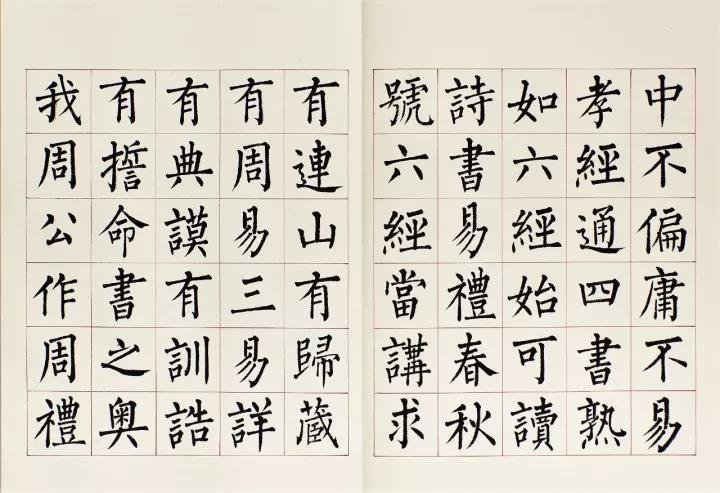 中不偏庸不易
孝經通四書熟
如六經始可讀
詩書易禮春秋
號六經當講求
有連山有歸藏
有周易三易詳
有典謨有訓誥
有誓命書之奧
我周公作周禮